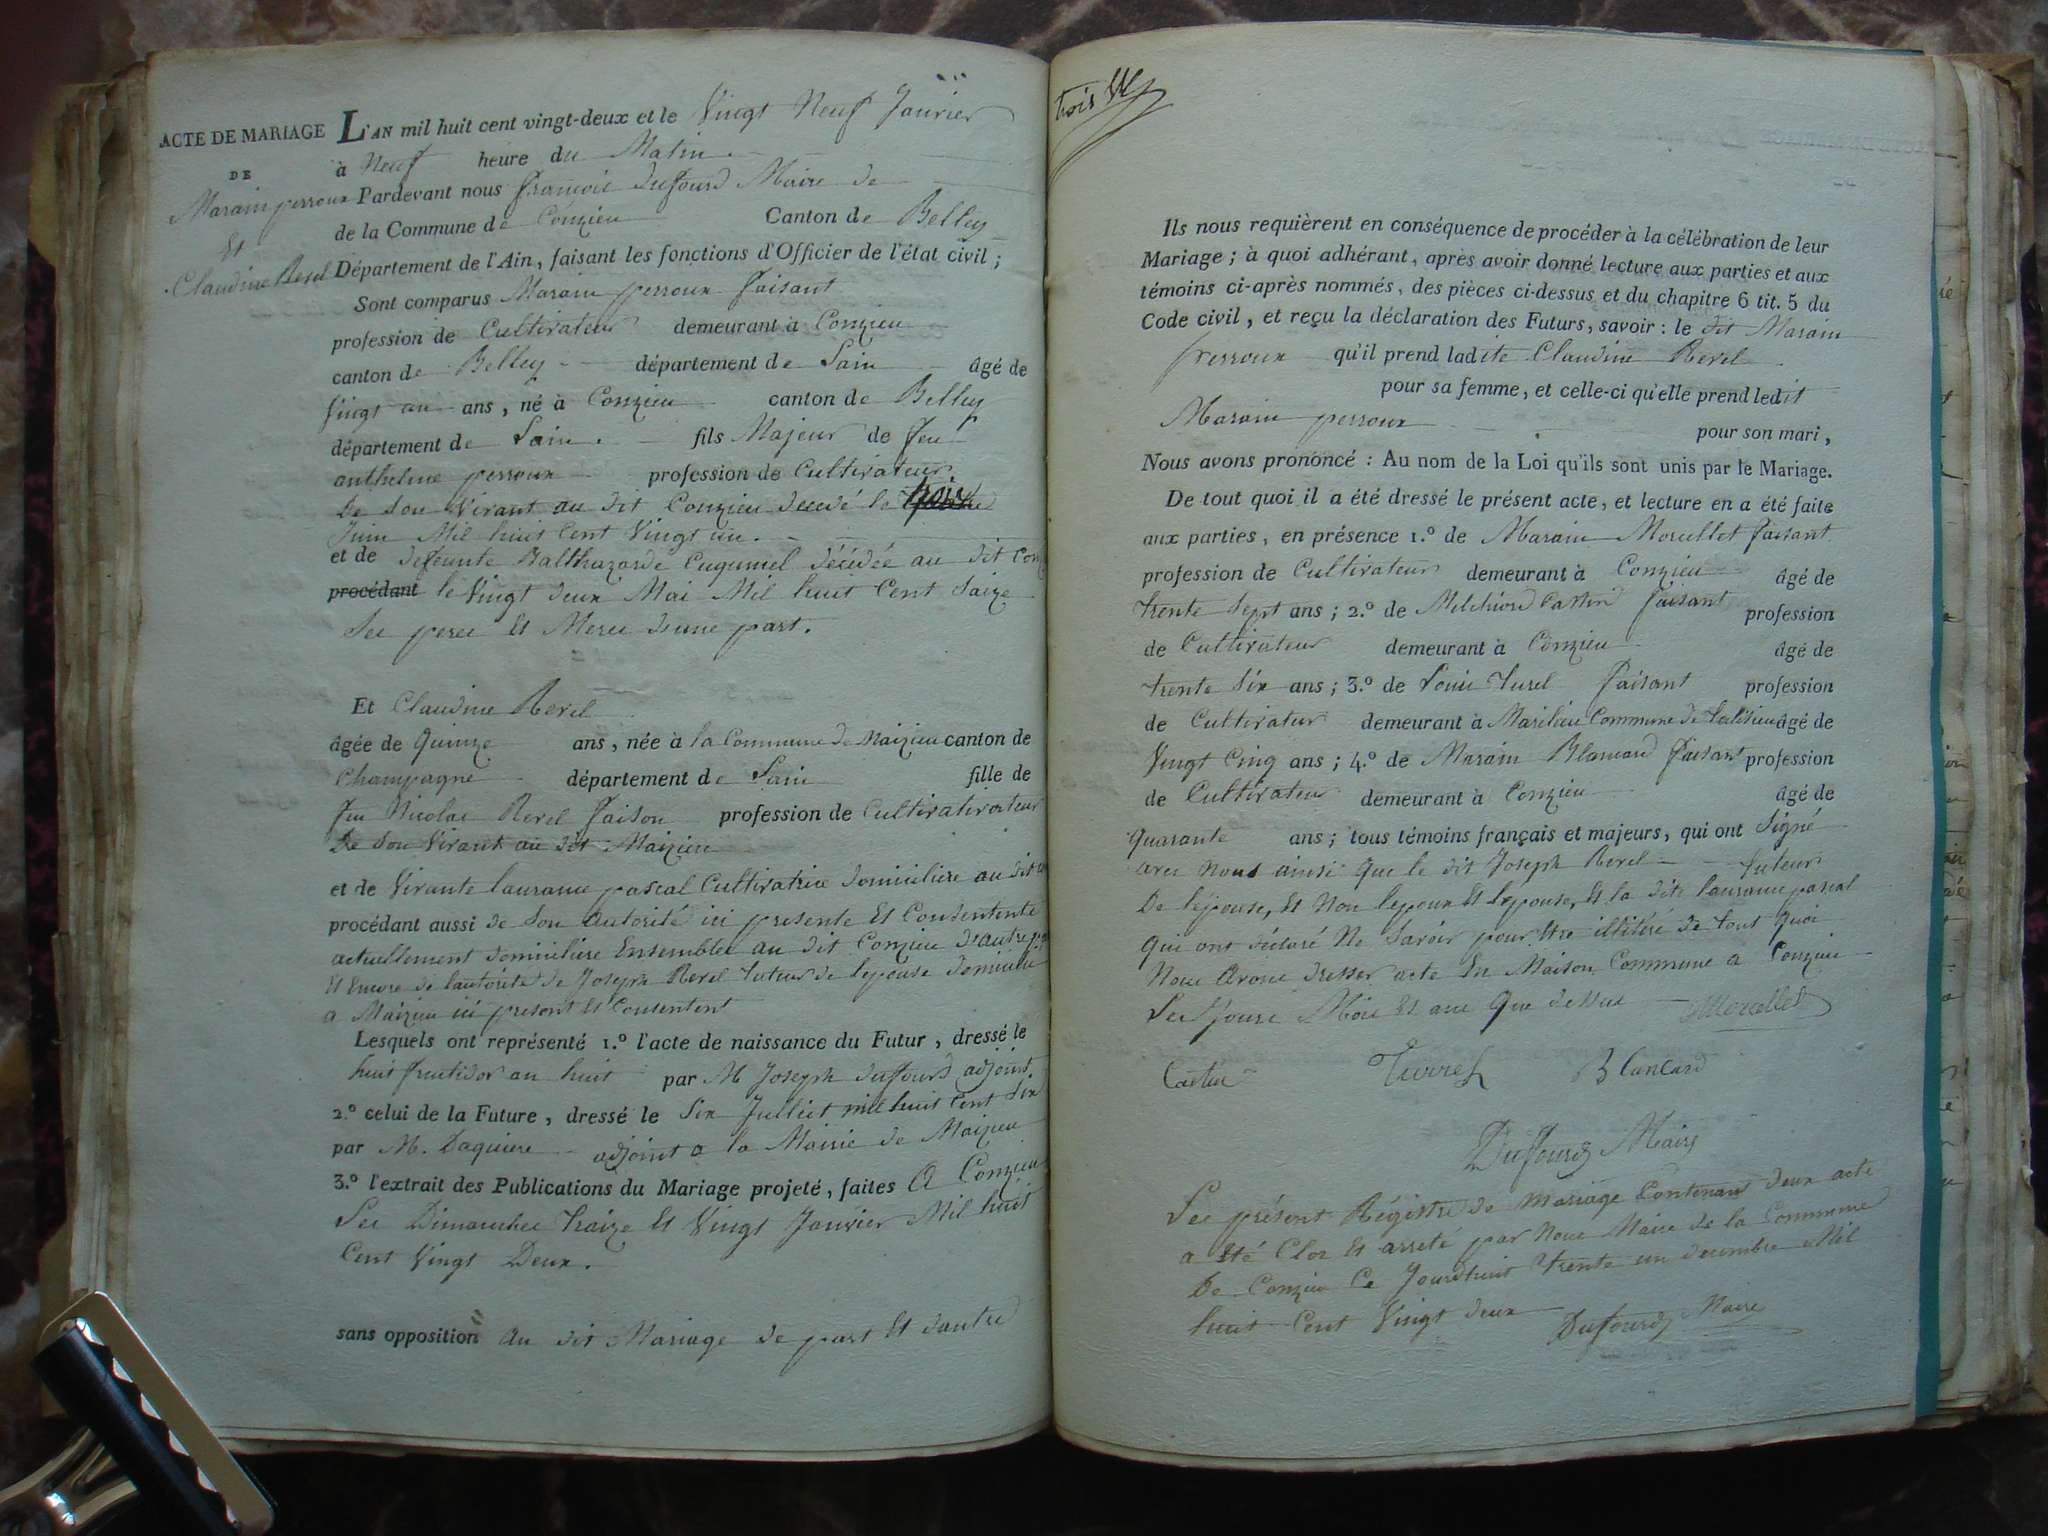 ACTE DE MARIAGE
DE
Marain perroux
Et
Claudine Revel
L'AN mil huit cent vingt-deux et le Vingt Neuf Janvier
à Neuf heure du Matin.
Pardevant nous françois dufourd Maire de
de la Commune de Conzieu Canton de Belley
Département de l'Ain, faisant les fonctions d'Officier de l'état civil ;
Sont comparus Marain perroux faisant
profession de Cultivateur demeurant à Conzieu
canton de Belley département de Lain âgé de
Vingt un ans, né à Conzieu canton de Belley
département de Lain. fils Majeur de feu
anthelme perroux profession de Cultivateur
De Son Vivant au dit Conzieu décédé le
Juin Mil huit Cent Vingt un.
et de defeunte Balthazarde Cuguniel décédée au dit Con
procédant le Vingt deux Mai Mil huit Cent Saize
Ses peres Et Meres dune part.
Et Claudine Revel
âgée de Quinze ans, née à la Commune de Maizieu canton de
Champagne département de Lain fille de
feu Nicolas Revel faison profession de Cultivativateur
De Son Vivant au dit Maizieu
et de Vivante laurance pascal Cultivatrice domiciliere au dit
procédant aussi de Son autorité ici presente Et Consentente
actuellement domiciliere Ensembles au dit Conzieu D'autre part
Et Encore de lautorité de Joseph Revel tuteur de lepouse domicilié
a Maizieu ici present Et Consentent
Lesquels ont représenté 1.º l'acte de naissance du Futur, dressé le
huit fructidor an huit par M Joseph dufourd adjoint.
2.º celui de la Future, dressé le Six Julliet mil huit Cent Six
par M. Daquiere adjoint a la Mairie de Maizieu
3.º l'extrait des Publications du Mariage projeté, faites A Conzieu
Les Dimanches Traize Et Vingt Janvier Mil huit
Cent Vingt Deux.
sans opposition au dit Mariage de part Et dautre
trois
Ils nous requièrent en conséquence de procéder à la célébration de leur
Mariage ; à quoi adhérant, après avoir donné lecture aux parties et aux
témoins ci-après nommés, des pièces ci-dessus et du chapitre 6 tit. 5 du
Code civil, et reçu la déclaration des Futurs, savoir : le dit Marain
perroux qu'il prend ladite Claudine Revel
pour sa femme, et celle-ci qu'elle prend ledit
Marain perroux pour son mari,
Nous avons prononcé : Au nom de la Loi qu'ils sont unis par le Mariage.
De tout quoi il a été dressé le présent acte, et lecture en a été faite
aux parties, en présence 1.º de Marain Morellet faisant
profession de Cultivateur demeurant à Conzieu âgé de
trente Sept ans ; 2.º de Melchiord Castin faisant profession
de Cultivateur demeurant à Conzieu âgé de
trente Six ans ; 3.º de Louis Turel faisant profession
de Cultivateur demeurant à Marilieu Commune de âgé de
Vingt Cinq ans ; 4.º de Marain Blancard faisant profession
de Cultivateur demeurant à Conzieu âgé de
quarante ans ; tous témoins français et majeurs, qui ont Signé
avec Nous ainsi que le dit Joseph Revel tuteur
De lépouse, Et Non lepoux Et lepouse, Et la dite laurance pascal
Qui ont déclaré Ne Savoir pour Etre illitéré de tout quoi
Nous avons dresser acte En Maison Commune a Conzieu
Les Jours Mois Et ans Que dessus Morellet
Castin Turrel Blancard
Dufourd Maire
Les présent Régistre de Mariage Contenant deux acte
a été Clos Et arreté par Nous Maire de la Commune
De Conzieu Ce Jourdhuit trente un decembre Mil
huit Cent Vingt deux Dufourd Maire